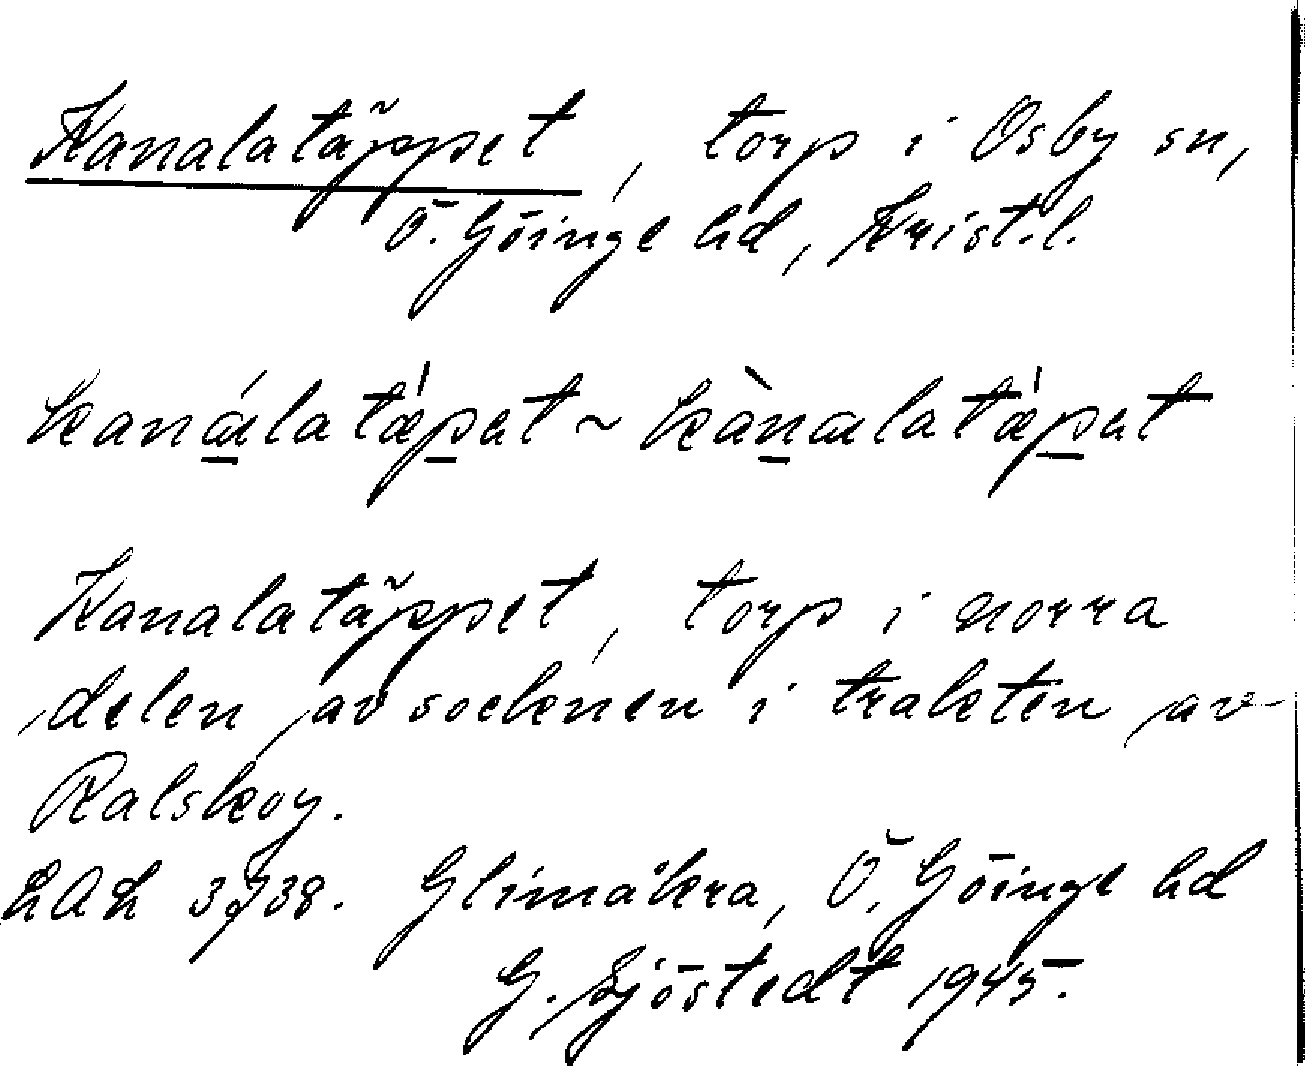 Kanalatäppet, torp i Osby sn,
Ö. Göinge hd, Krist.l.
kanálatæ̍pət ~ kànalatæ̍pət
Kanalatäppet, torp i norra
delen av socknen i trakten av
Ralskog.
LAL 3738. Glimåkra, Ö. Göinge hd
G. Sjöstedt 1945.